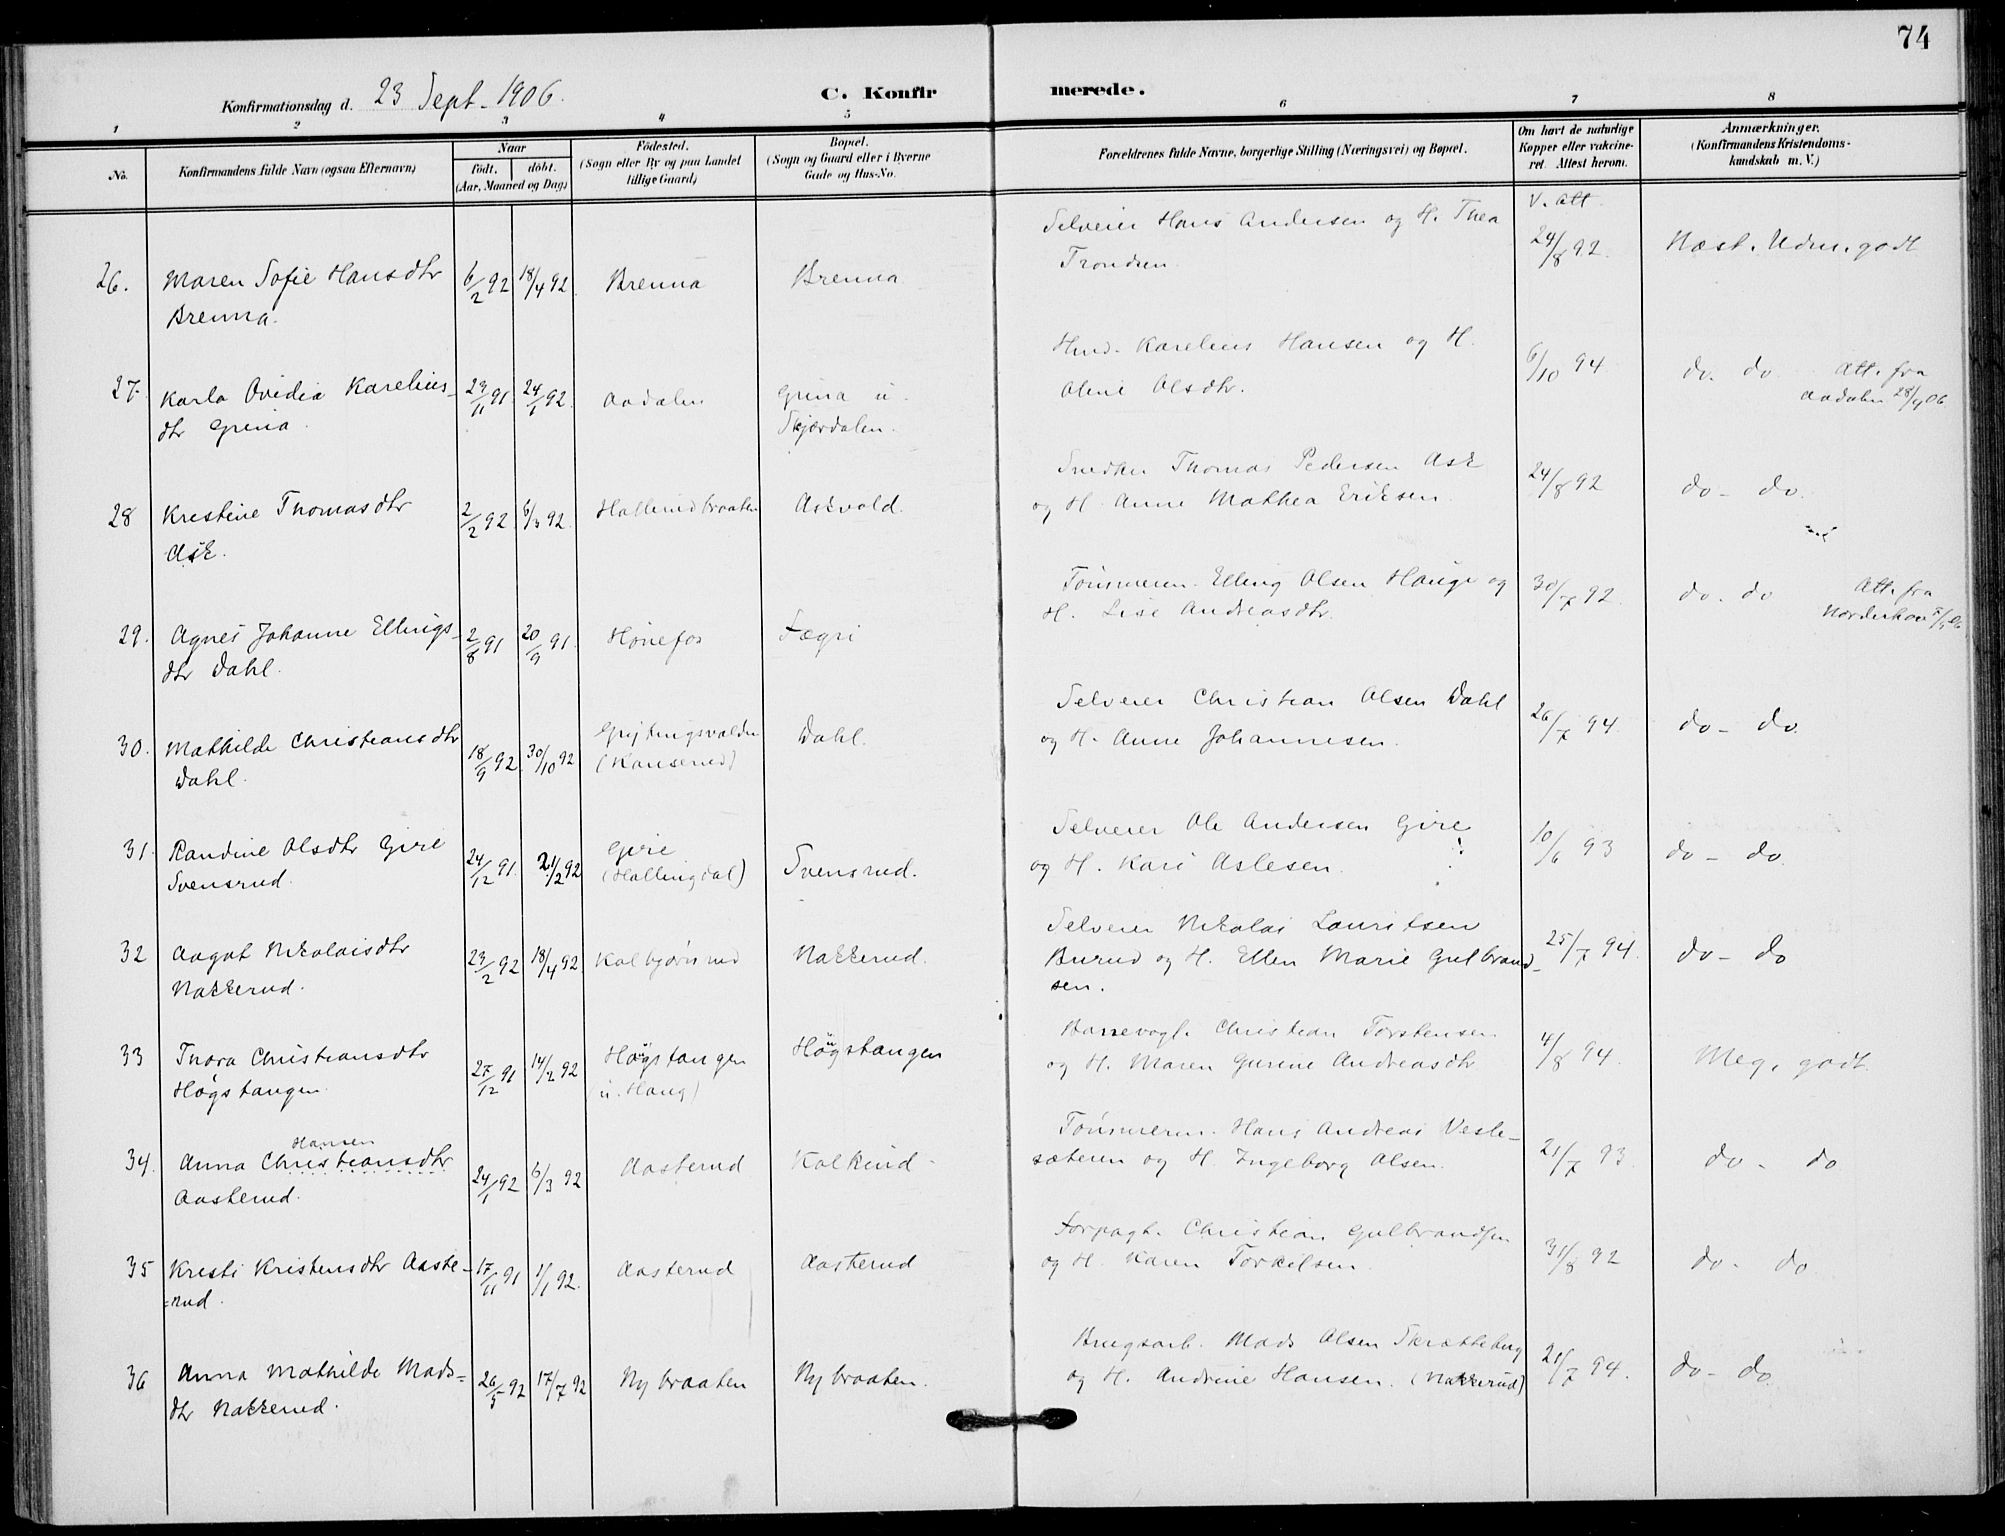 74
Konfirmationsdag d. 23 Sept. 1906.
C. Konfirmerede.
1 2 3 4 5 6 7 8
No.
Konfirmandens fulde Navn (ogsaa Efternavn)
Naar
født. døbt.
(Aar, Maaned og Dag)
Fødested.
(Sogn eller By og paa Landet
tillige Gaard)
Bopæl.
(Sogn og Gaard eller i Byerne
Gade og Hus-No.
Forældrenes fulde Navne, borgerlige Stilling (Næringsvei) og Bopæl.
Om havt de naturlige
Kopper eller vakcine-
ret. Attest herom.
Anmærkninger.
(Konfirmandens Kristendoms-
kundskab m. V.)
V. Att.
Selveier Hans Andersen og H. Thea
Trondsen.
24/8 92.
Mæst. Udm. godt
26. Maren Sofie Hansdtr
Brenna.
6/2 92 18/4 92 Brenna Brenna
Karelius Hansen og H.
Olene Olsdtr.
6/10 94 do. do. Att. fra
Aadalen 28/9 06
27. Karla Ovidia Karelius-
dtr Grina.
23/11 91 24/1 92. Aadalen Grina u.
Skjærdalen.
Snedker Thomas Pedersen Ask
og H. Anne Mathea Eriksen.
24/8 92 do - do.
28 Kristine Thomasdtr
Ask.
2/2 92 6/3 92. Hallerudbraaten Askvald.
Tømmerm. Elling Olsen Hauge og
H. Lise Andreasdtr.
30/7 92. do. do Att. fra
Norderhov
29. Agnes Johanne Ellings-
dtr Dahl.
2/8 91 20/9 91. Hønefos Fægri
Selveier Christian Olsen Dahl
og H. Anne Johannesen.
26/7 94. do - do.
30. Mathilde Christiansdtr
Dahl.
18/9 92 30/10 92 (Kanserud) Dahl.
Selveier Ole Andersen Gire
og H. Kari Aslesen.
10/6 93 do - do.
31. Randine Olsdtr Gire
Svensrud.
24/12 91. 21/2 92 Gire
(Hallingdal) Svensrud.
Selveier Nikolai Lauritsen
Burud og H. Ellen Marie Gulbrand-
sen.
25/7 94. do - do
32 Aagot Nikolaisdtr
Nakkerud.
23/2 92 18/4 92 Kolbjørnsrud Nakkerud.
Christian Torstensen
og H. Maren Gurine Andreasdtr
4/8 94. Meg. godt
33 Thora Christiansdtr
Høgstangen.
27/12 91 14/2 92 Høgstangen
(u. Haug) Høgstangen
Tømmerm. Hans Andreas Vesle-
sæteren og H. Ingeborg Olsen.
21/7 93. do - do
34. Anna Hansen Christiansdtr
Aasterud.
24/1 92 6/3 92 Aasterud Kolkind
Forpagt. Christian Gulbrandsen
og H. Karen Torkilsen.
31/8 92 do - do
35 Kristi Kristensdtr Aaste-
=rud.
17/11 91 1/1 92. Aasterud Aasterud
Brugsarb. Mads Olsen Skrætteberg
og H. Andrine Hansen. (Nakkerud)
21/7 94. do - do.
36 Anna Mathilde Mads=
dtr Nakkerud.
26/5 92 17/7 92 Nybraaten Nybraaten.